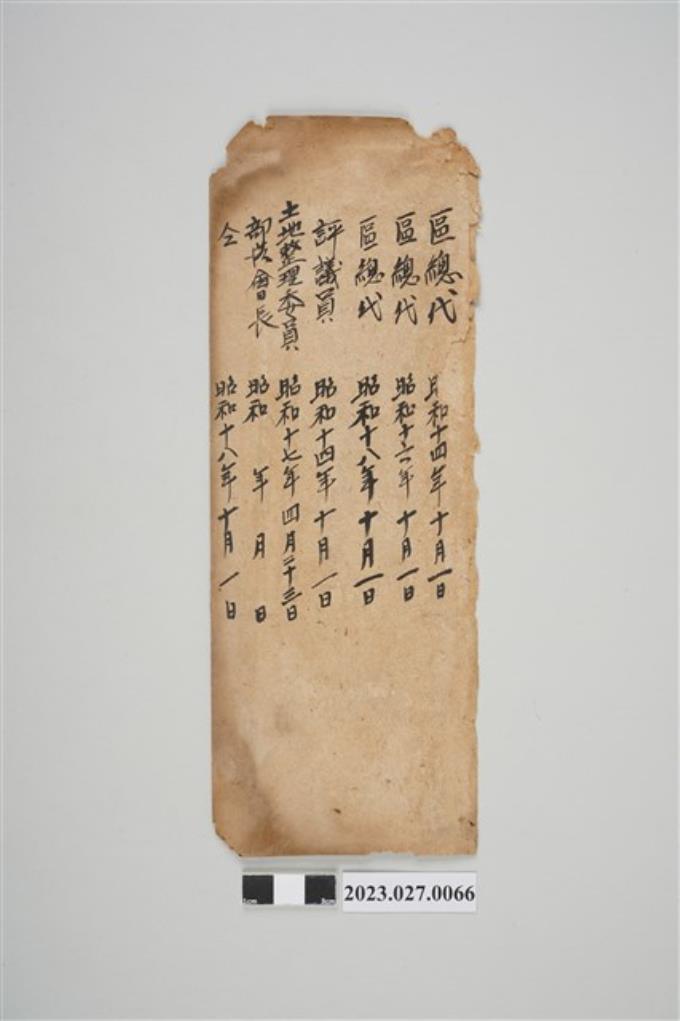 區總代 昭和十四年十月一日
區總代 昭和十六年十月一日
區總代 昭和十八年十月一日
評議員 昭和十四年十月一日
土地整理委員 昭和十七年四月二十三日
部落會長 昭和 年 月 日
仝 昭和十八年十月一日
2023.027.0066